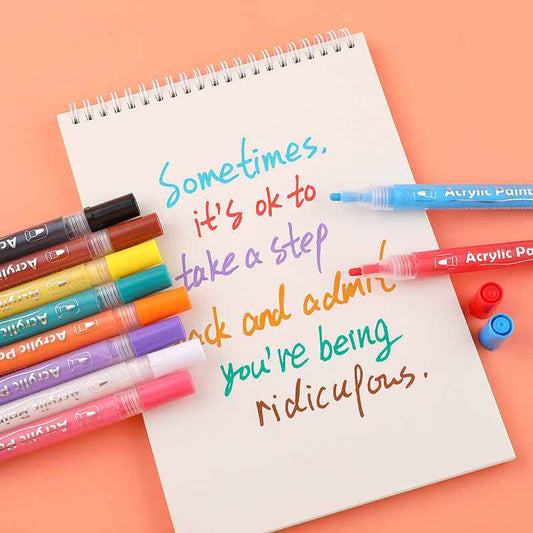 Sometimes,
it's ok to
take a step
ack and admit
you're being
ridiculous.
Acrylic Paint
Acrylic Pa
Acrylic
Acrylic
Acrylic
Acrylic Pa
Acrylic Pa
Acrylic Pa
Acrylic Pain
Acrylic Pa